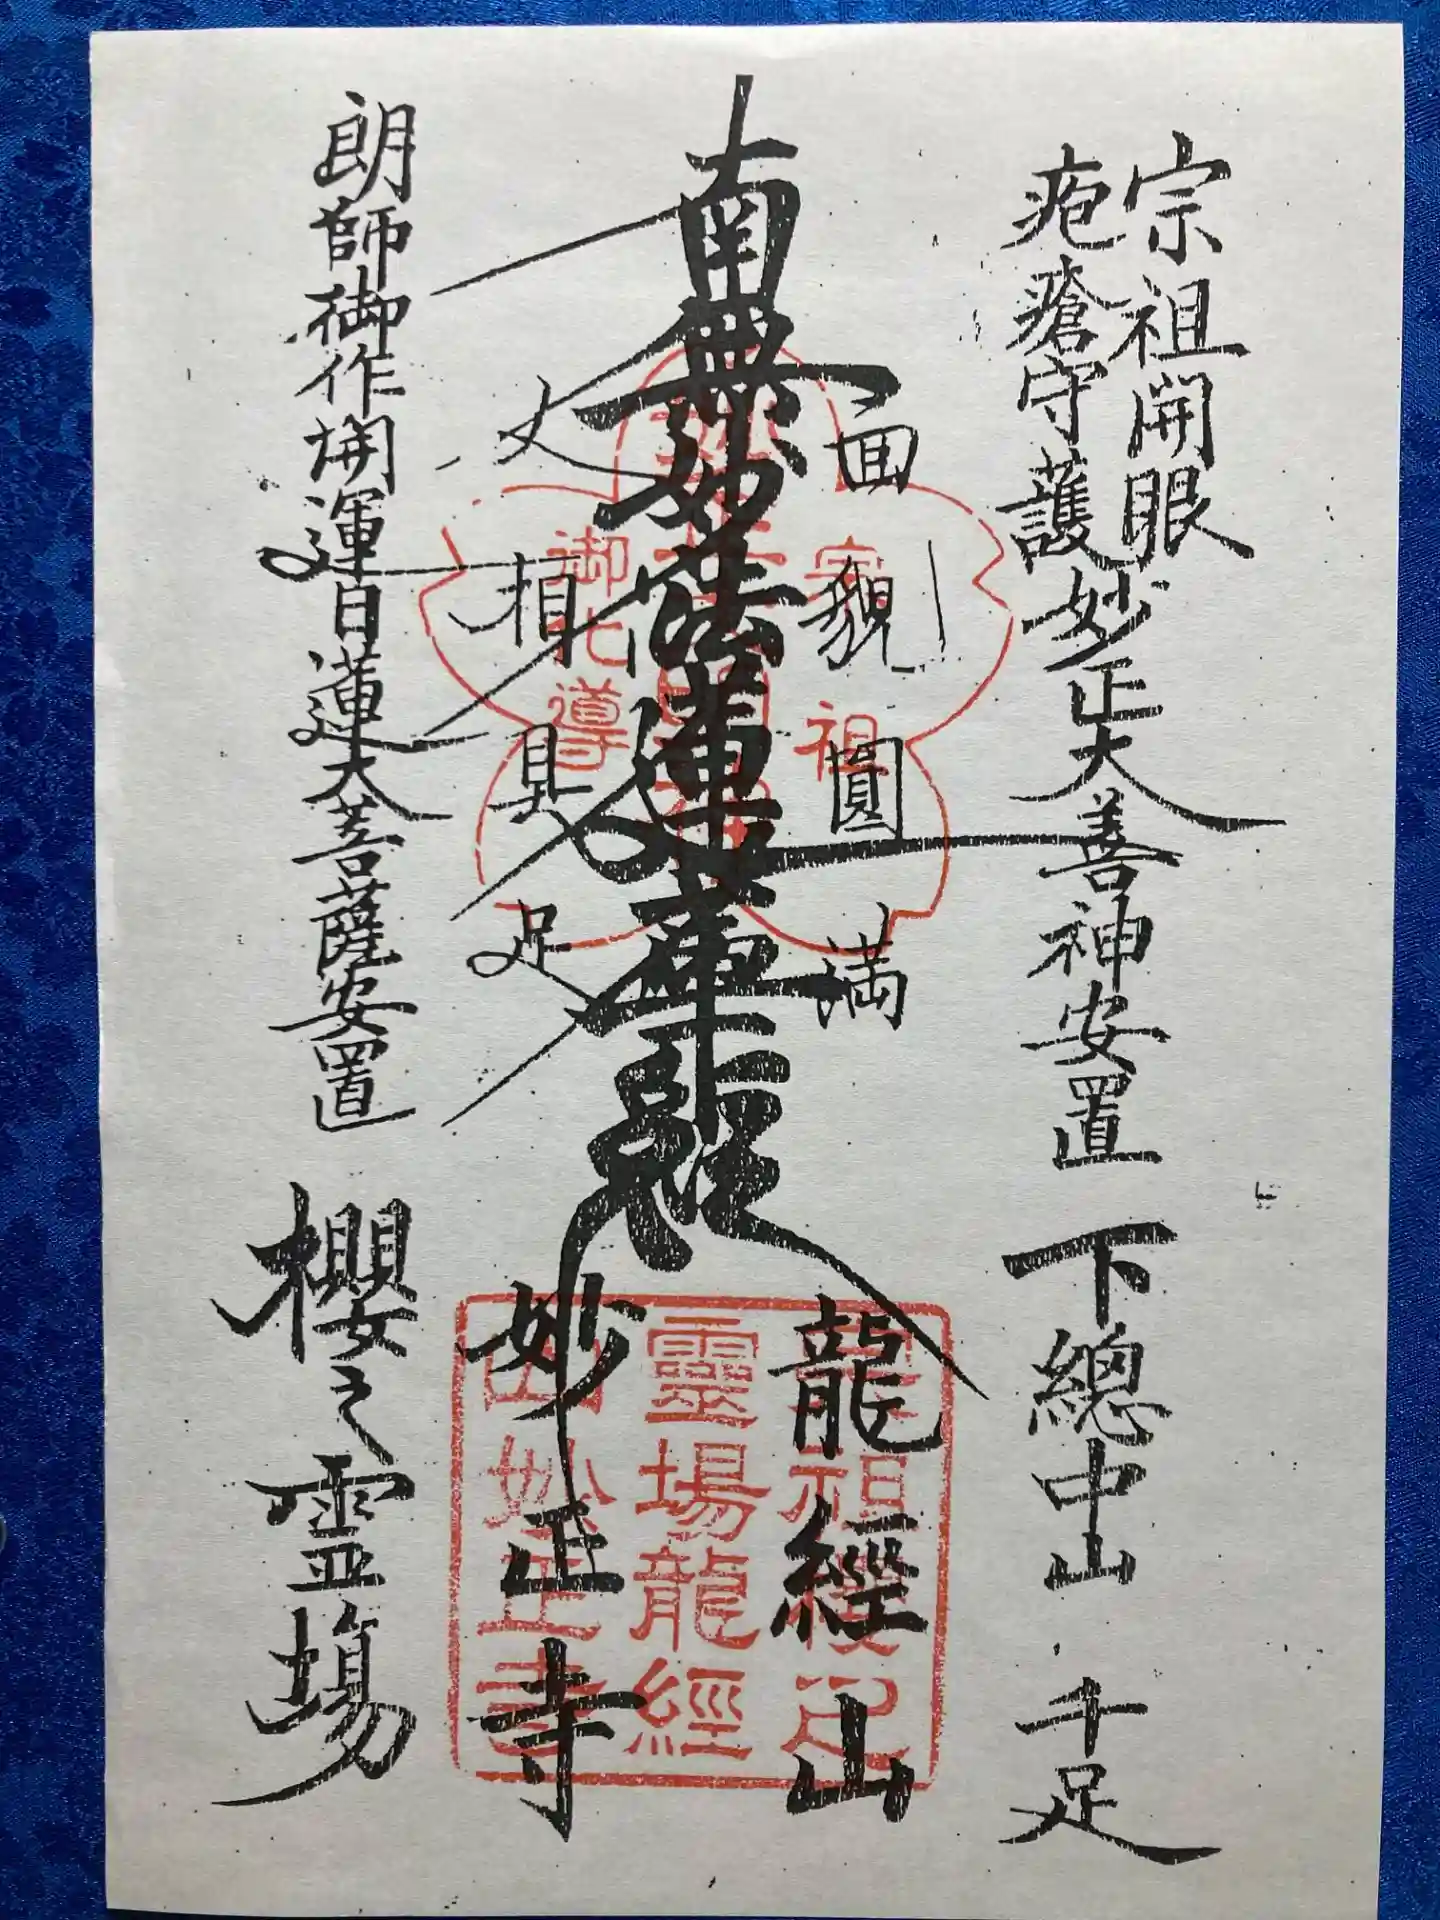 宗祖開眼
疱瘡守護妙正大善神安置
下總中山 千足
面貌圓滿
南無妙法蓮華經
丈相具足
龍經山
妙正寺
朗師御作開運日蓮大菩薩安置
櫻之霊場
御化導
靈場龍經
山妙正寺